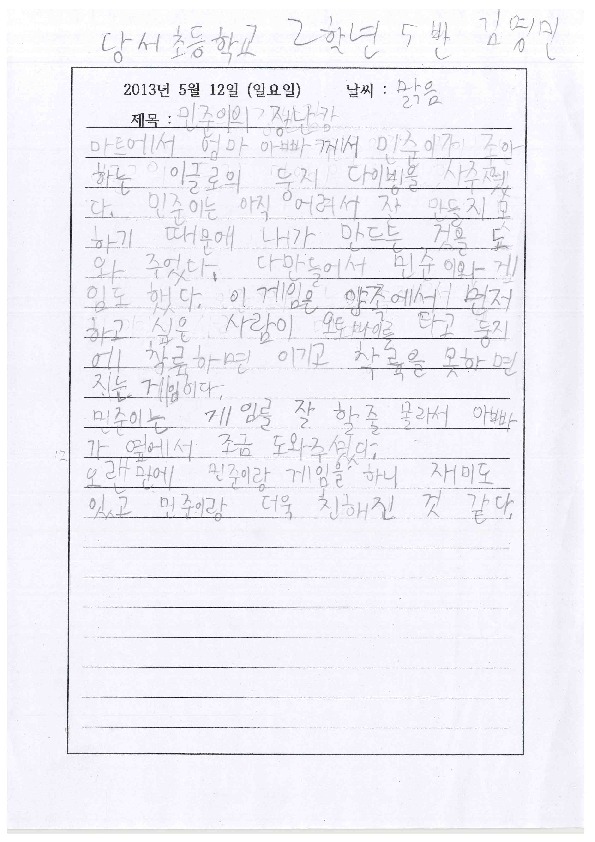 당서초등학교 2학년 5반 김명민
2013년 5월 12일 (일요일) 날씨 : 맑음
제목 : 민준이의 장난감
마트에서 엄마 아빠께서 민준이가 조아
하는 이글로의 둥지 다이빙을 사주셨
다. 민준이는 아직 어려서 잘 만들지 못
하기 때문에 내가 만드는 것을 도
와 주었다. 다만들어서 민준이와 게
임도 했다. 인게임은 양쪽에서 먼저
하고 싶은 사람이 오토바이를 타고 둥지
에 착륙하면 이기고 착륙을 못하면
지는 게임이다.
민준이는 게임를 잘 할줄 몰라서 아빠
가 옆에서 조금 도와주셨다.
오랜만에 민준이랑 게임을 하니 재미도
있고 민준이랑 더욱 친해진 것 같다.